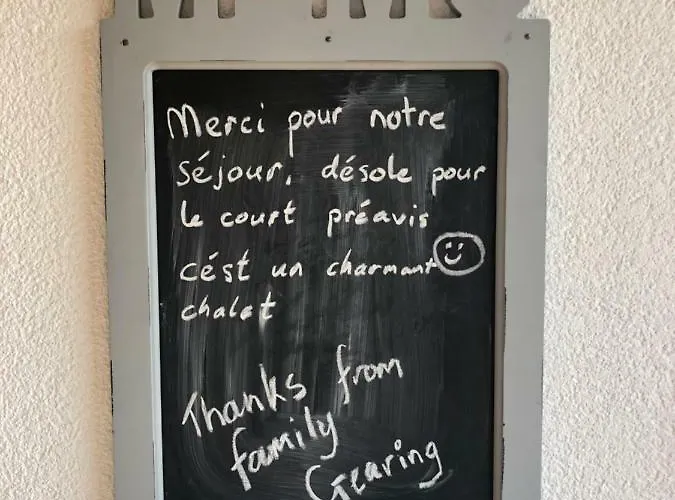 Merci pour notre
séjour, désole pour
le court préavis
cést un charmant
chalet
Thanks from
family
Gearing